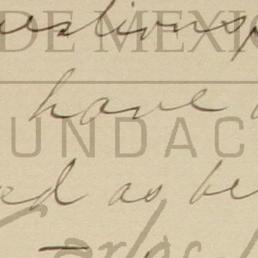 uestions
DE MEXIC
have
UNDAC
ed as be
Carlos